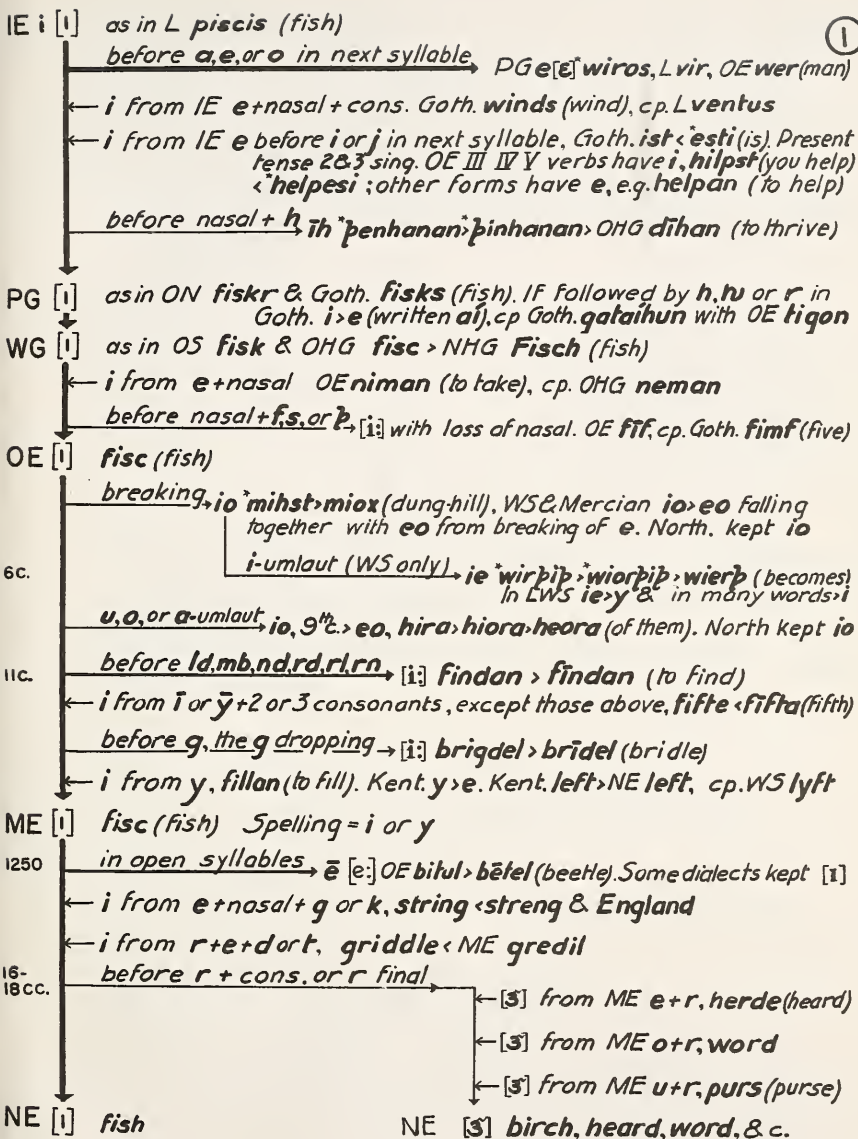 ①
IE i [ɪ] as in L piscis (fish)
before a, e, or o in next syllable → PG e [ɛ] *wiros, L vir, OE wer (man)
← i from IE e + nasal + cons. Goth. winds (wind), cp. L ventus
← i from IE e before i or j in next syllable, Goth. ist < *esti (is). Present
tense 2&3 sing. OE III IV V verbs have i, hilpst (you help)
< *helpesi; other forms have e, e.g. helpan (to help)
before nasal + h → īh *þenhanan > *þinhanan > OHG dīhan (to thrive)
PG [ɪ] as in ON fiskr & Goth. fisks (fish). IF followed by h, ƕ or r in
Goth. i > e (written aí), cp Goth. gataíhun with OE tigon
WG [ɪ] as in OS fisk & OHG fisc > NHG Fisch (fish)
← i from e + nasal OE niman (to take), cp. OHG neman
before nasal + f, s, or þ → [i:] with loss of nasal. OE fīf, cp. Goth. fimf (five)
OE [ɪ] fisc (fish)
breaking → io *mihst > miox (dung-hill), WS & Mercian io > eo falling
together with eo from breaking of e. North. kept io
6c. i-umlaut (WS only) → ie *wirþiþ > *wiorþiþ > wierþ (becomes)
In LWS ie > y & in many words > i
u, o, or a-umlaut → io, 9th c. > eo, hira > hiora > heora (of them). North kept io
11c. before ld, mb, nd, rd, rl, rn → [i:] findan > fīndan (to find)
← i from ī or ȳ + 2 or 3 consonants, except those above, fifte < fīfta (fifth)
before g, the g dropping → [i:] brigdel > brīdel (bridle)
← i from y, fillan (to fill). Kent. y > e. Kent. left > NE left, cp. WS lyft
ME [ɪ] fisc (fish) Spelling = i or y
1250 in open syllables → ē [e:] OE bitul > bētel (beetle). Some dialects kept [ɪ]
← i from e + nasal + g or k, string < streng & England
← i from r + e + d or t, griddle < ME gredil
16-18cc. before r + cons. or r final
← [ɝ] from ME e + r, herde (heard)
← [ɝ] from ME o + r, word
← [ɝ] from ME u + r, purs (purse)
NE [ɪ] fish NE [ɝ] birch, heard, word, & c.